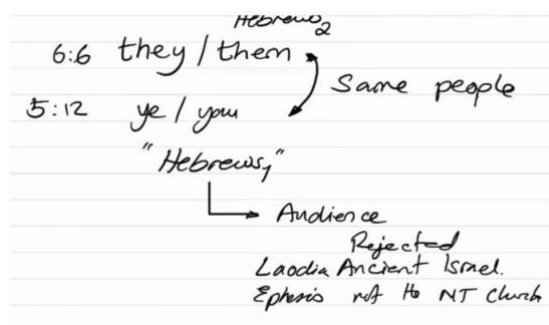 Hebrews2
6:6 they / them
Same people
5:12 ye / you
"Hebrews1"
Audience
Rejected
Laodia Ancient Israel.
Ephesis not the NT Church